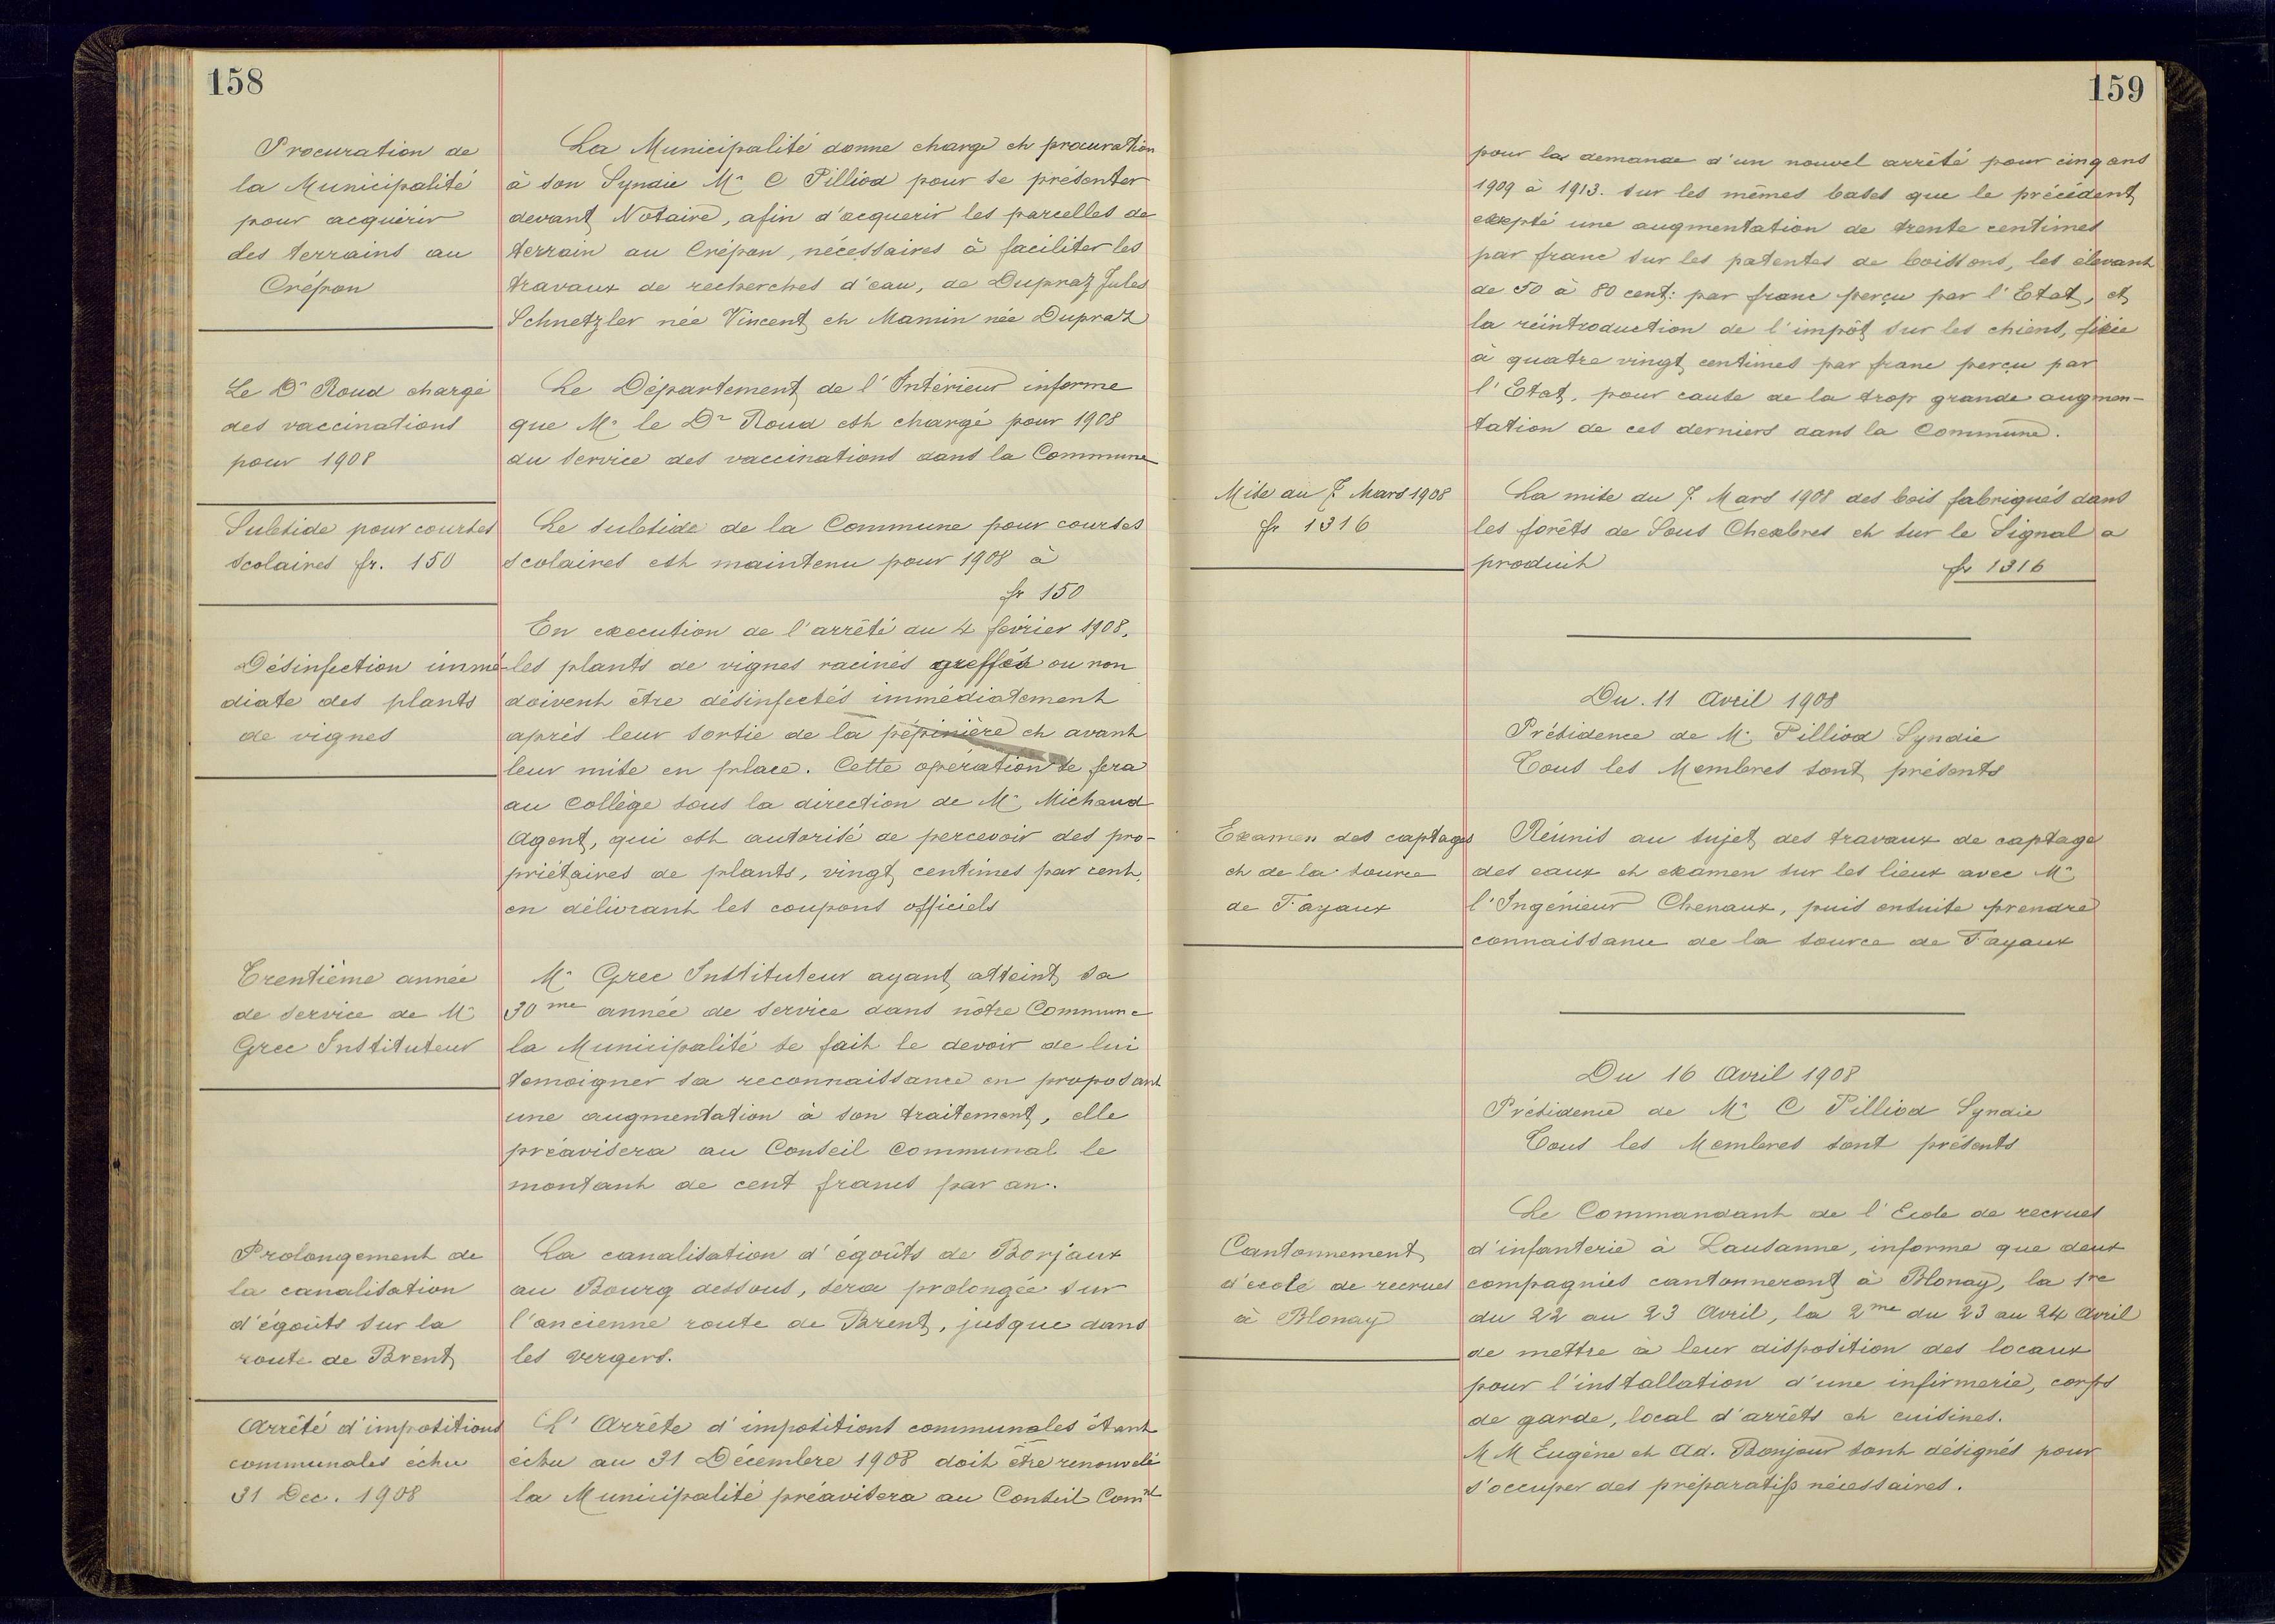 158
Procuration de
la Municipalité
pour acquérir
des terrains au
Crépon
La Municipalité donne charge et procuration
à son Syndic Mr C Pilliod pour se présenter
devant Notaire, afin d'acquerir les parcelles de
terrain au Crépon, nécessaires à faciliter les
travaux de recherches d'eau, de Dupraz Jules
Schnetzler née Vincent et Mamin née Dupraz
Le Dr Roud chargé
des vaccinations
pour 1908
Le Département de l'Intérieur informe
que Mr le Dr Roud est chargé pour 1908
du service des vaccinations dans la Commune
Subside pour courses
scolaires fr. 150
Le subside de la Commune pour courses
scolaires est maintenu pour 1908 à
fr 150
Désinfection immé-
diate des plants
de vignes
En execution de l'arrêté du 4 février 1908,
les plants de vignes racinés greffés ou non
doivent être désinfectés immédiatement
après leur sortie de la pépinière et avant
leur mise en place. Cette opération se fera
au Collège sous la direction de Mr Michaud
Agent, qui est autorisé de percevoir des pro-
priétaires de plants, vingt centimes par cent,
en délivrant les coupons officiels
Trentième année
de service de Mr
Grec Instituteur
Mr Grec Instituteur ayant atteint sa
30me année de service dans nôtre Commune
la Municipalité se fait le devoir de lui
temoigner sa reconnaissance en proposant
une augmentation à son traitement, elle
préavisera au Conseil Communal le
montant de cent francs par an.
Prolongement de
la canalisation
d'égoûts sur la
route de Brent
La canalisation d'égoûts de Borjaux
au Bourg dessous, sera prolongée sur
l'ancienne route de Brent, jusque dans
les vergers.
Arrêté d'impositions
communales échu
31 Dec. 1908
L'Arrête d'impositions communales étant
échu au 31 Décembre 1908 doit être renouvelé
la Municipalité préavisera au Conseil Coml
159
pour la demande d'un nouvel arrêté pour cinq ans
1909 à 1913. sur les mêmes bases que le précédent
excepté une augmentation de trente centimes
par franc sur les patentes de boissons, les élevant
de 50 à 80 cent: par franc perçu par l'Etat, et
la réintroduction de l'impôt sur les chiens, fixée
à quatre vingt centimes par franc perçu par
l'Etat, pour cause de la trop grande augmen-
tation de ces derniers dans la Commune.
Mise du 7 Mars 1908
fr 1316
La mise du 7. Mars 1908 des bois fabriqués dans
les forêts de Sous Chexbres et sur le Signal a
produit fr 1316
Du. 11 Avril 1908
Présidence de Mr Pilliod Syndic
Tous les Membres sont présents
Examen des captages
et de la source
de Fayaux
Réunis au sujet des travaux de captage
des eaux et examen sur les lieux avec Mr
l'Ingénieur Chenaux, puis ensuite prendre
connaissance de la source de Fayaux
Du 16 Avril 1908
Présidence de Mr C Pilliod Syndic
Tous les Membres sont présents
Cantonnement
d'école de recrues
à Blonay
Le Commandant de l'Ecole de recrues
d'infanterie à Lausanne, informe que deux
compagnies cantonneront à Blonay, la 1re
du 22 au 23 Avril, la 2me du 23 au 24 Avril
de mettre à leur disposition des locaux
pour l'installation d'une infirmerie, corps
de garde, local d'arrêts et cuisines.
MM Eugène et Ad. Bonjour sont désignés pour
s'occuper des préparatifs nécessaires.